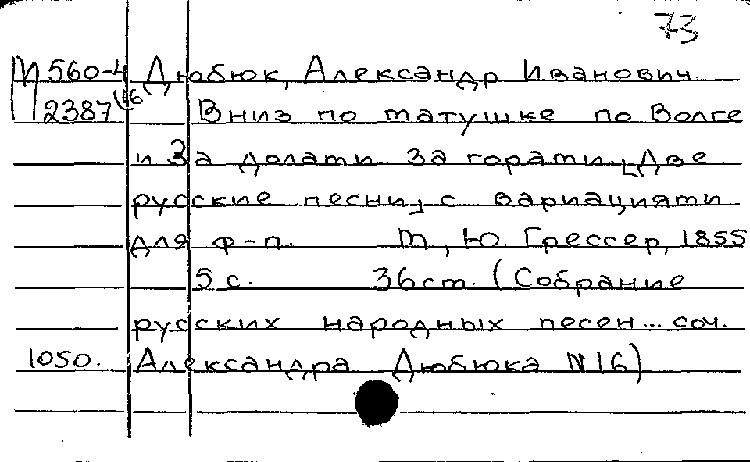 73
М560-4 Дюбюк, Александр Иванович
2387(16) Вниз по матушке по Волге
и За долами за горами. [Две
русские песни] с вариациями
для ф-п. М, Ю. Грессер, 1855
5 с. 36 ст. (Собрание
русских народных песен... соч.
1050. Александра Дюбюка N16)